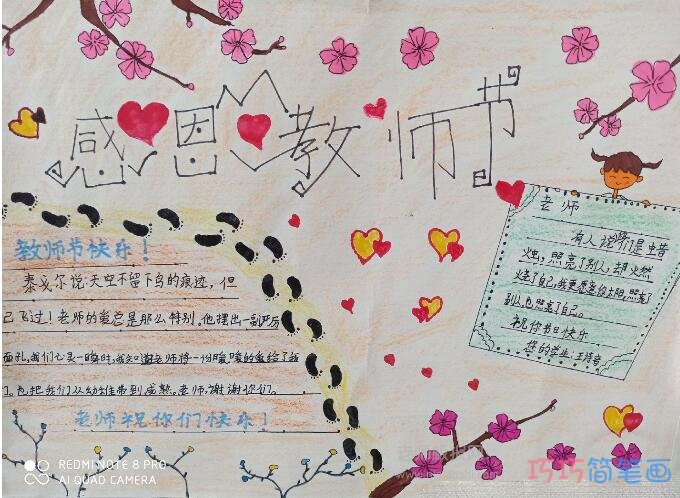 感恩教师节
教师节快乐！
泰戈尔说天空不留下鸟的痕迹，但
己飞过！老师的爱总是那么特别。他摆出一副严厉
面孔，我们心灵一瞬时，我知道老师将一份暖暖的爱给了我
们。也把我们从幼稚带到成熟。老师，谢谢你们。
老师祝你们快乐！
老师
有人说你们是蜡
烛，照亮了别人，却火然
烧了自己，我更愿意
别人也照亮了自己。
祝你节日快乐
您的学生
REDMI NOTE 8 PRO
AI QUAD CAMERA
巧巧简笔画